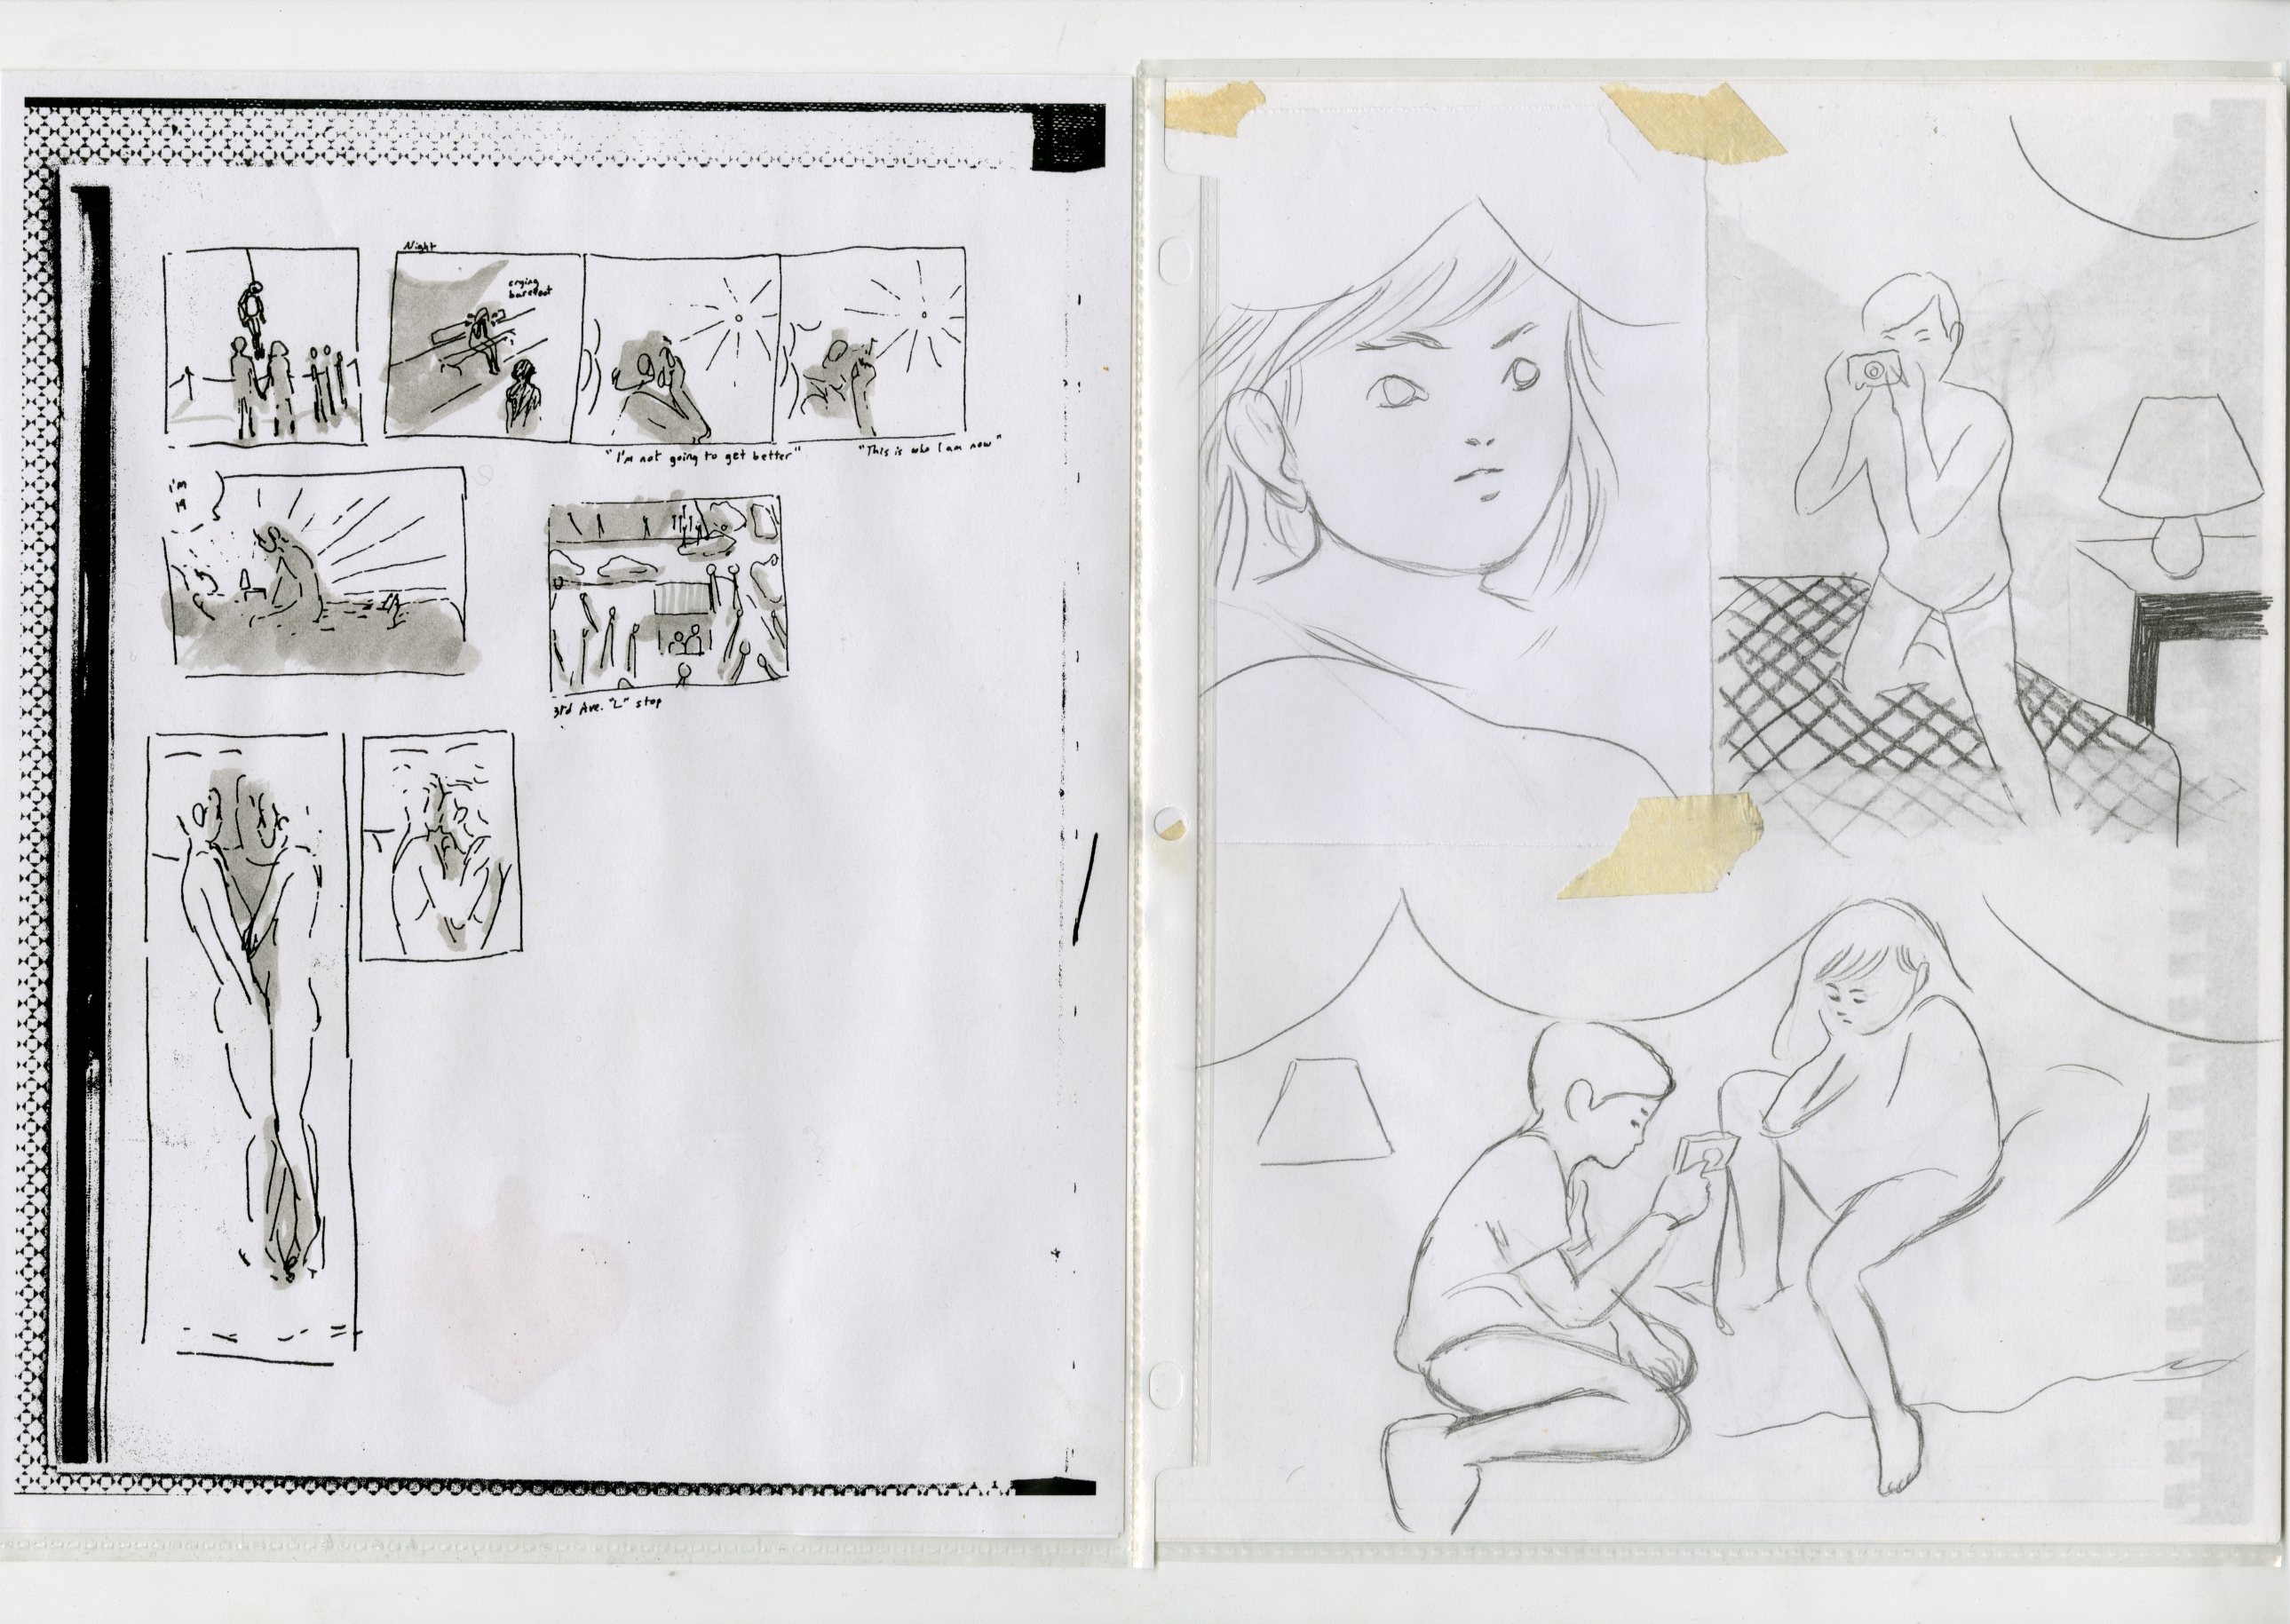 Night
crying
barefoot
"I'm not going to get better"
"This is who I am now"
I'm
3rd Ave. "L" stop